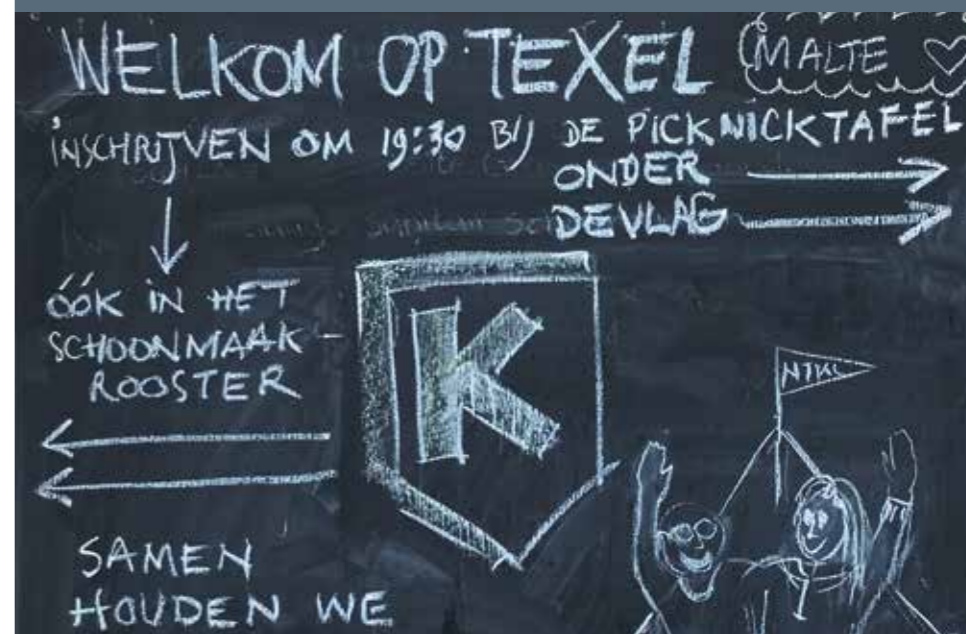 WELKOM OP TEXEL
MALTE
INSCHRIJVEN OM 19:30 BIJ DE PICKNICKTAFEL
ONDER
DEVLAG
ÓÓK IN HET
SCHOONMAAK-
ROOSTER
K
SAMEN
HOUDEN WE